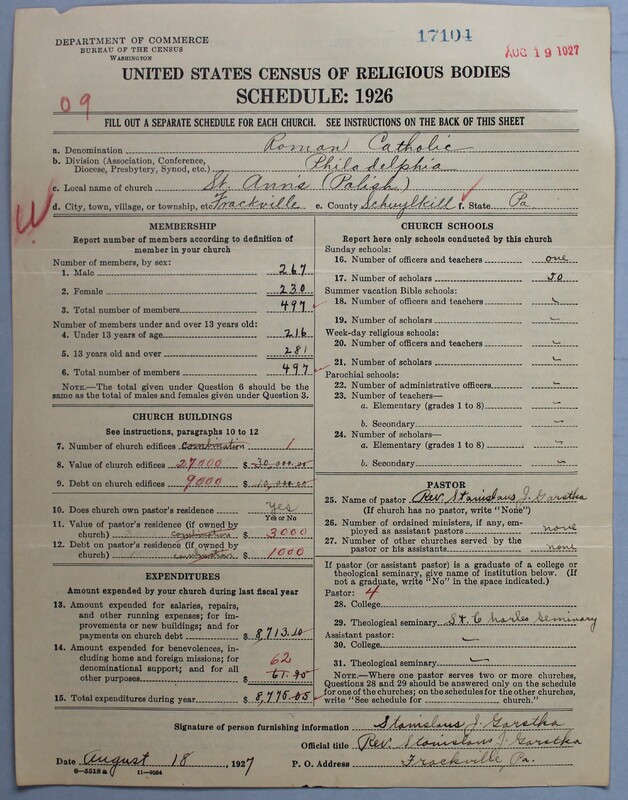 17104
AUG 19 1927
DEPARTMENT OF COMMERCE
BUREAU OF THE CENSUS
WASHINGTON
UNITED STATES CENSUS OF RELIGIOUS BODIES
SCHEDULE: 1926
09
FILL OUT A SEPARATE SCHEDULE FOR EACH CHURCH. SEE INSTRUCTIONS ON THE BACK OF THIS SHEET
a. Denomination Roman Catholic
b. Division (Association, Conference, Diocese, Presbytery, Synod, etc.) Philadelphia
c. Local name of church St. Ann's (Polish)
d. City, town, village, or township, etc. Frackville e. County Schuylkill f. State Pa
W
MEMBERSHIP
Report number of members according to definition of
member in your church
Number of members, by sex:
1. Male 267
2. Female 230
3. Total number of members 497
Number of members under and over 13 years old:
4. Under 13 years of age 216
5. 13 years old and over 281
6. Total number of members 497
NOTE.—The total given under Question 6 should be
same as the total of males and females given under Question 3.
CHURCH BUILDINGS
See instructions, paragraphs 10 to 12
7. Number of church edifices combination 1
8. Value of church edifices 27000 $ 30,000.00
9. Debt on church edifices 9000 $ 10,000.00
10. Does church own pastor's residence Yes
Yes or No
11. Value of pastor's residence (if owned by
church) combination $ 3000
12. Debt on pastor's residence (if owned by
church) combination $ 1000
EXPENDITURES
Amount expended by your church during last fiscal year
13. Amount expended for salaries, repairs,
and other running expenses; for im-
provements or new buildings; and for
payments on church debt $ 8,713.10
14. Amount expended for benevolences, in-
cluding home and foreign missions; for
denominational support; and for all
other purposes $ 62
61.95
15. Total expenditures during year $ 8,775.05
CHURCH SCHOOLS
Report here only schools conducted by this church
Sunday schools:
16. Number of officers and teachers one
17. Number of scholars 50
Summer vacation Bible schools:
18. Number of officers and teachers
19. Number of scholars
Week-day religious schools:
20. Number of officers and teachers
21. Number of scholars
Parochial schools:
22. Number of administrative officers
23. Number of teachers—
a. Elementary (grades 1 to 8)
b. Secondary
24. Number of scholars—
a. Elementary (grades 1 to 8)
b. Secondary
PASTOR
25. Name of pastor Rev. Stanislaus J. Garstka
(If church has no pastor, write "None")
26. Number of ordained ministers, if any, em-
ployed as assistant pastors none
27. Number of other churches served by the
pastor or his assistants none
If pastor (or assistant pastor) is a graduate of a college or
theological seminary, give name of institution below. (If
not a graduate, write "No" in the space indicated.)
Pastor: 4
28. College
29. Theological seminary St. Charles Seminary
Assistant pastor:
30. College
31. Theological seminary
NOTE.—Where one pastor serves two or more churches,
Questions 28 and 29 should be answered only on the schedule
for one of the churches; on the schedules for the other churches,
write "See schedule for church."
Signature of person furnishing information Stanislaus J. Garstka
Official title Rev. Stanislaus J. Garstka
Date August 18, 1927 P. O. Address Frackville, Pa.
6—5518 a 11—9054